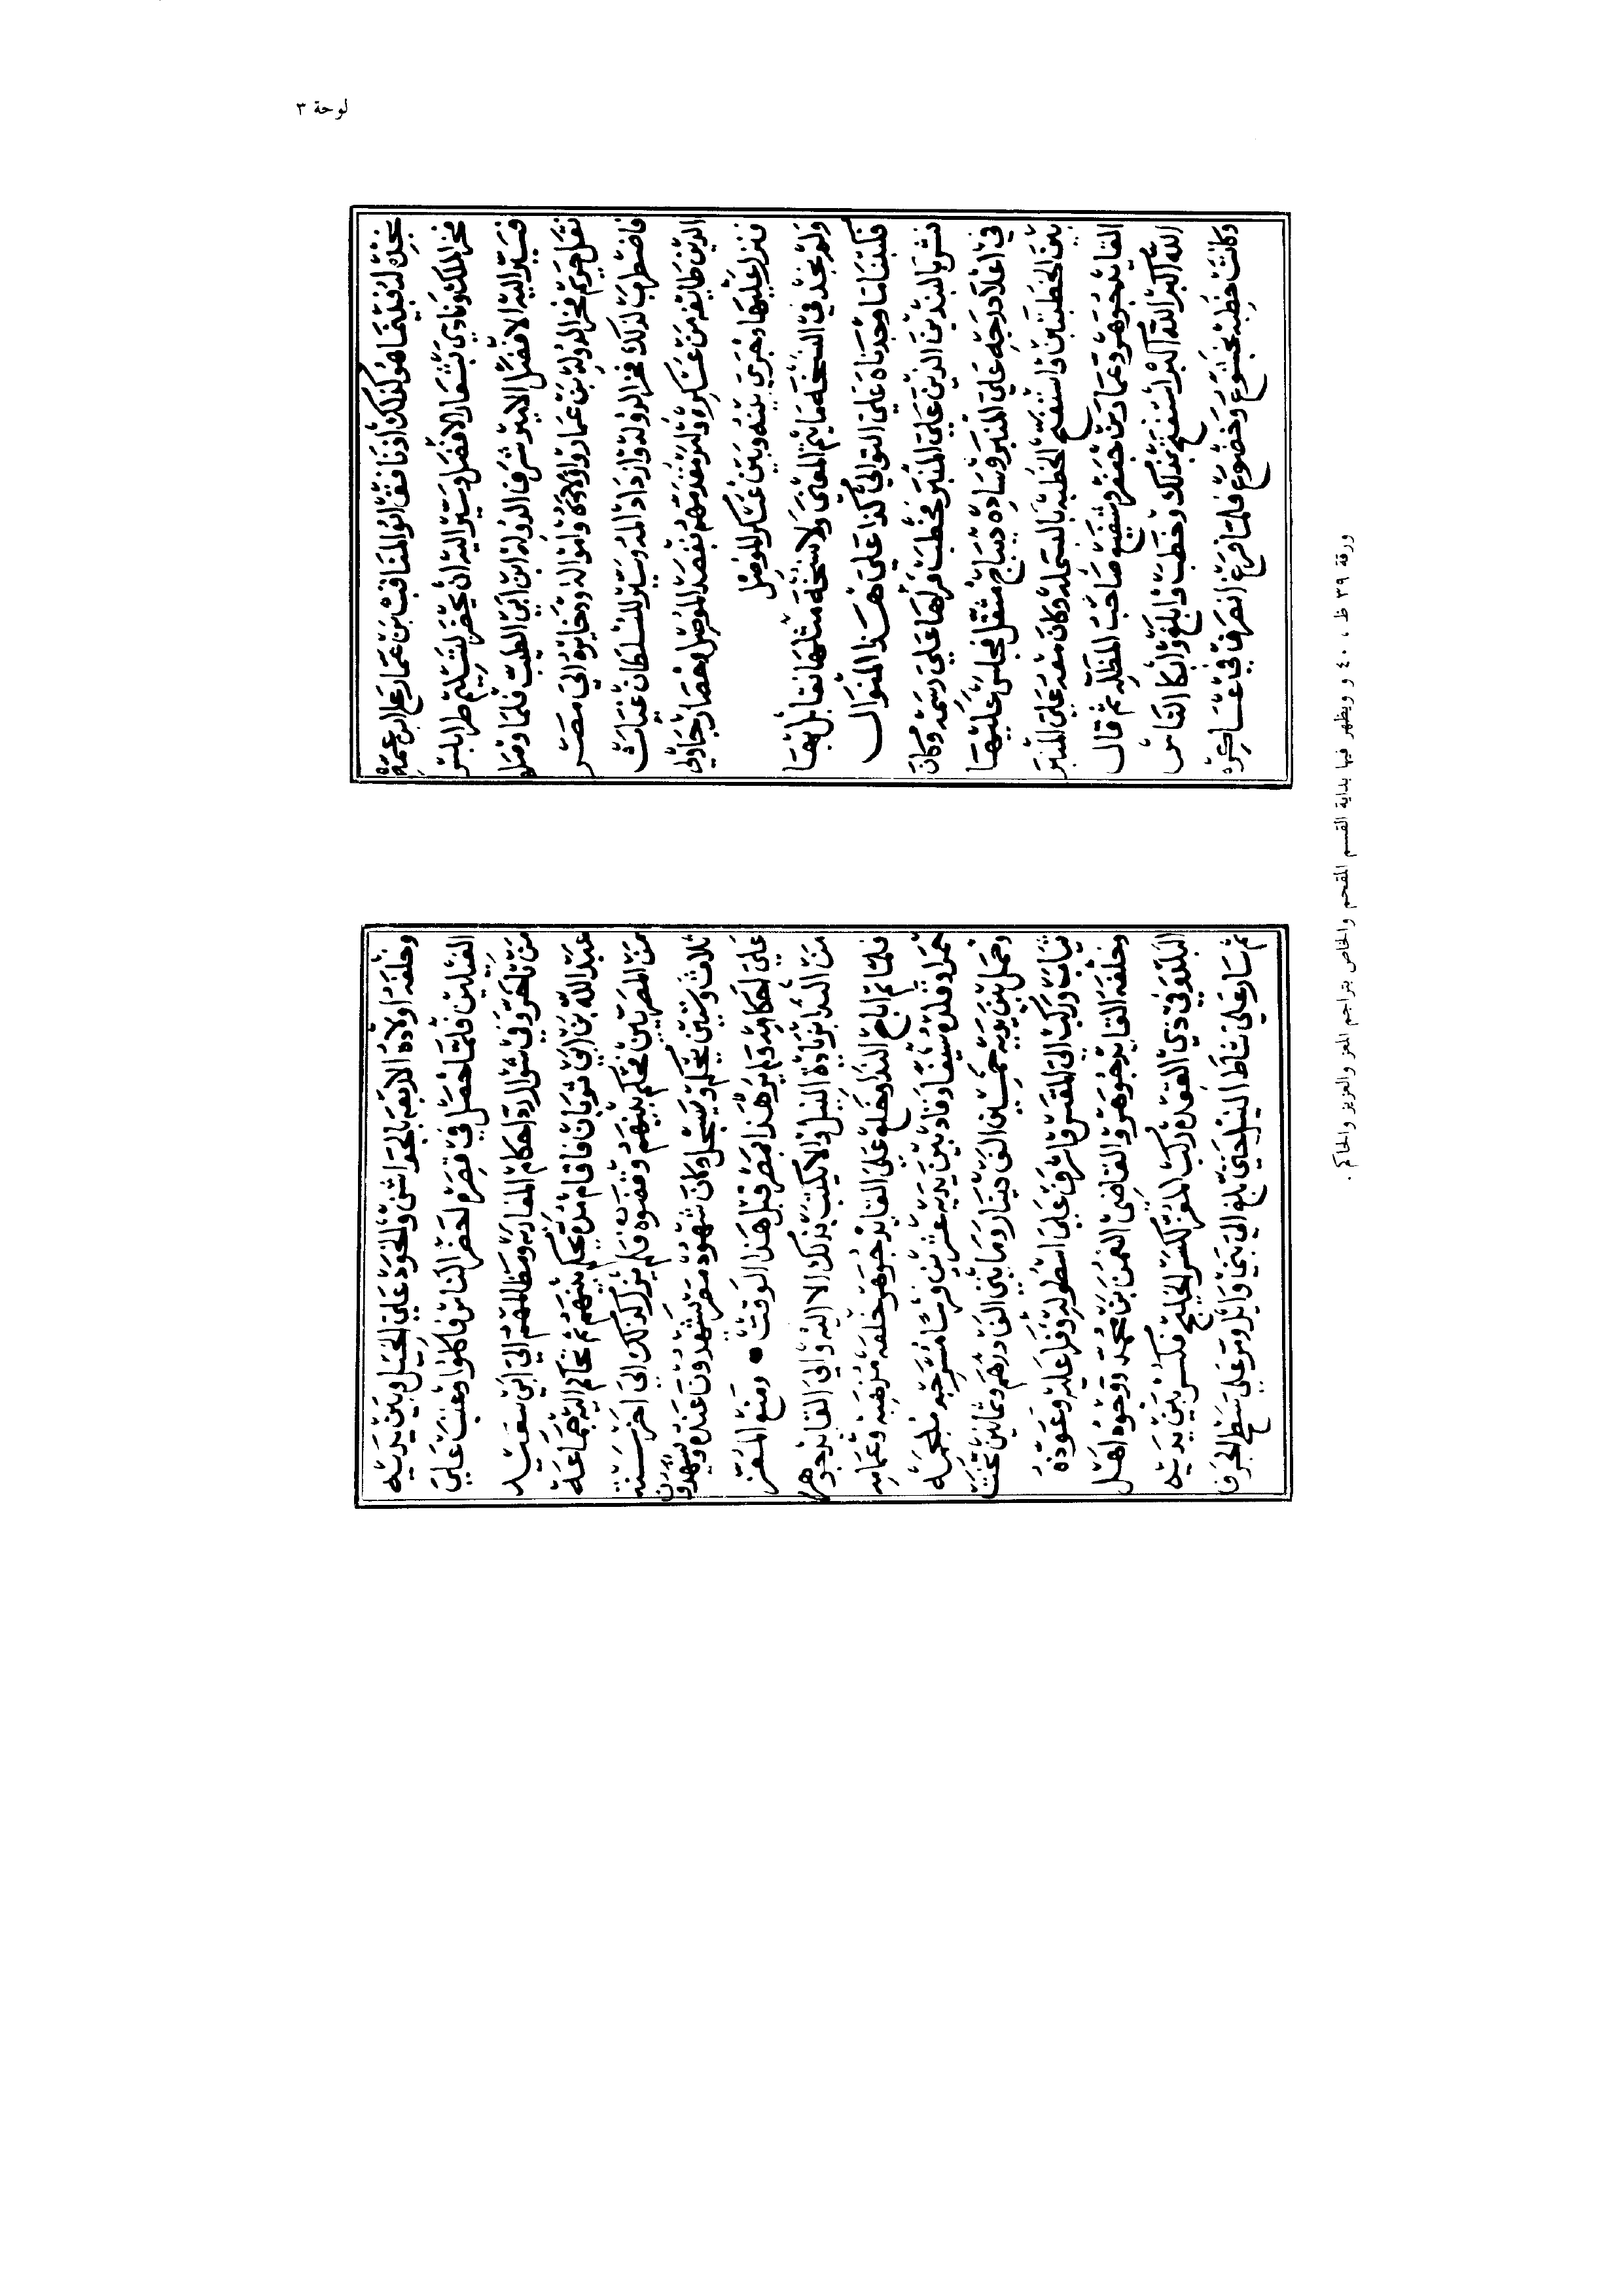 لوحة ٣
بحزن له فبينما هو كذلك اذ نافق ابو المناقب بن عمار على ابن عمه
فخر الملك ونادى بشعار الافضل وسير اليه ان يحضر لتسليم طرابلس
فسير اليه الافضل الامير شرف الدوله ابن ابي الطيب فلما وصل
نقل حريم فخر الدوله بن عمار واولاده وامواله وذخايره الى مصر
فاضطرب لذلك فخر الدوله وازداد المه وسير للسلطان غياث
الدين طايفه من عسكره وامر مقدمهم بقصد الموصل وحصار جاولي
فنزل عليها وجرى بينه وبين عسكر الموصل
ولم نجد في النسخه ما يتم المعنى ولا نسخه مثلها نقابل بها
فكتبنا ما وجدناه على التوالي كذا على هذا المنوال
نشر بالبندين الذين على المنبر فخطب وراها على رسمه وكان
في اعلا درجه على المنبر وساده ديباج مثقل فجلس عليها
بين الخطبتين واستفتح الخطبه بالبسمله وكان معه على المنبر
القايد جوهر وعمار بن جعفر وشفيع صاحب المظله ثم قال
الله اكبر الله اكبر استفتح بذلك وخطب وابلغ وابكا الناس
وكانت خطبه بخشوع وخضوع فلما فرغ انصرف في عساكره
وخلفه اولاده الاربعه بالجواشن والخود على الخيل وبين يديه
الفيلين فلما حصل في قصره احضر الناس فاكلوا وعتب على
من تاخر وفي شوال رد احكام المغاربه ومظالمهم الى ابي سعيد
عبد الله بن ابي ثوبان فاقام مده يحكم بينهم ثم تحاكم اليه جماعه
من المصريين فحكم بينهم وقضوه فلم يزل كذلك الى اخر سنه
ثلاث وستين يحكم ويسجل وكان شهود مصر يشهدون عنده ويشهدون
على احكامه ولم ير هذا بمصر قبل هذا الوقت • ومنع المعز
من الندا بزيادة النيل والا يكتب بذلك الا اليه والى القايد جوهر
فلما تم اباح الندا وخلع على القايد جوهر خلعه مذهبه وعمامه
حمرا وقلده سيفا وقاد بين يديه عشرين فرسا مسرجه ملجمه
وحمل بين يديه خمسين الف دينار ومايتي الف درهم وثمانين تخت
ثياب وركب الى المقس فاشرف على اسطوله وقرا عليه وعوذه
وخلفه القايد جوهر والقاضي النعمن بن محمد ووجوه اهل
البلد وفي ذي القعده ركب المعز لكسر الخليج فكسر بين يديه
ثم سار على شاطي النيل حتى بلغ الى بني وايل ومر على سطح الجرف
ورقة ٣٩ ظ ، ٤٠ و ويظهر فيها بداية القسم المقحم والخاص بتراجم المعز والعزيز والحاكم .